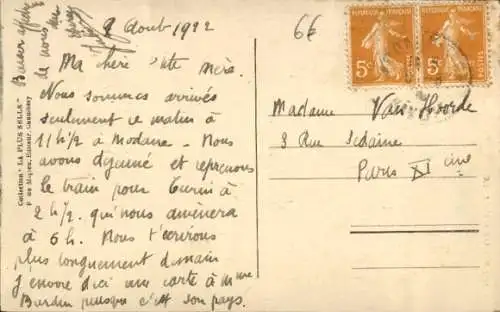 2 Aout 1922
6€
Ma chère p'tite mère.
Nous sommes arrivés
seulement ce matin à
11h1/2 à Modane - Nous
avons déjeuné et reprenons
le train pour Turin à
2h1/2. qui nous amènera
à 6h. Nous t'écrirons
plus longuement demain
J'envoie d'ici une carte à Mme
Burdin puisque c'est son pays.
Bien affect
de nous
Collection "LA PLUS BELLE"
REPUBLIQUE FRANÇAISE
5c
POSTES
REPUBLIQUE FRANÇAISE
5c
POSTES
Madame Van-Hoorde
3 Rue Sedaine
Paris XI ème